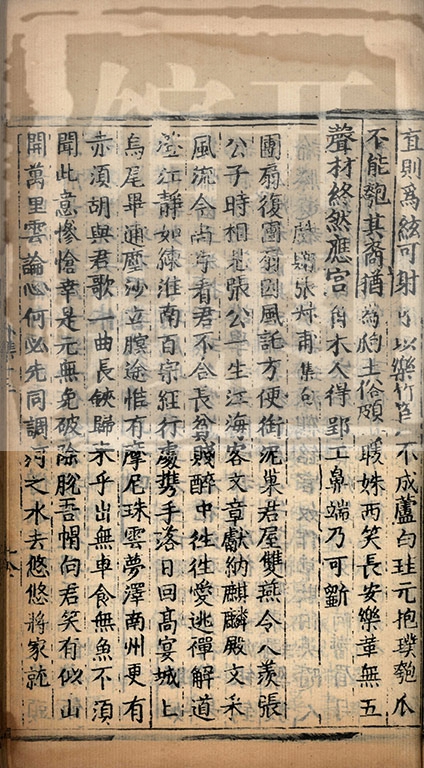 直則爲絃可射以樂竹不成蘆白珪元抱璞匏瓜
不能匏其裔猶為的土俗頗暖姝两笑長安樂韋無五
聲材終然應宮角木人得郢工鼻端乃可斵
戲贈張叔甫集句
團扇復團扇因風託方便銜泥巢君屋雙燕令人羨張
公子時相見張公一生江海客文章獻納麒麟殿文采
風流今尚存看君不合長貧賤醉中往往愛逃禪解道
澄江靜如練淮南百宗經行處携手落日回高宴城上
烏尾畢逋塵沙立瞑途惟有摩尼珠雲夢澤南州更有
赤須胡與君歌一曲長鋏歸來乎出無車食無魚不須
聞此意慘愴幸是元無免破除脫吾帽向君笑有似山
開萬里雲論心何必先同調河之水去悠悠將家就